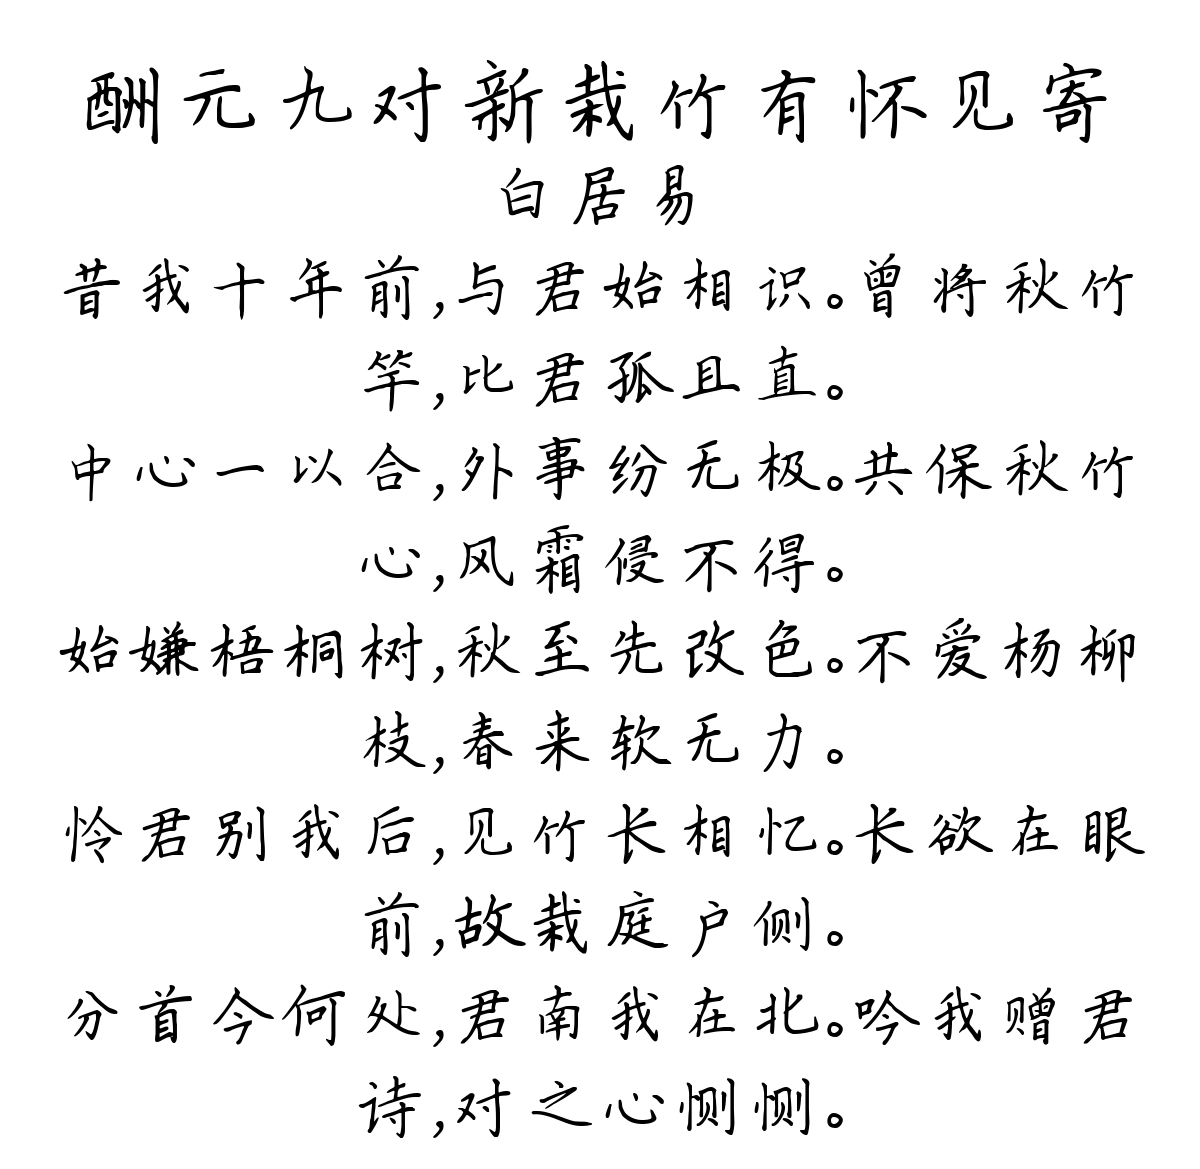 酬元九对新栽竹有怀见寄
白居易
昔我十年前,与君始相识。曾将秋竹
竿,比君孤且直。
中心一以合,外事纷无极。共保秋竹
心,风霜侵不得。
始嫌梧桐树,秋至先改色。不爱杨柳
枝,春来软无力。
怜君别我后,见竹长相忆。长欲在眼
前,故栽庭户侧。
分首今何处,君南我在北。吟我赠君
诗,对之心恻恻。